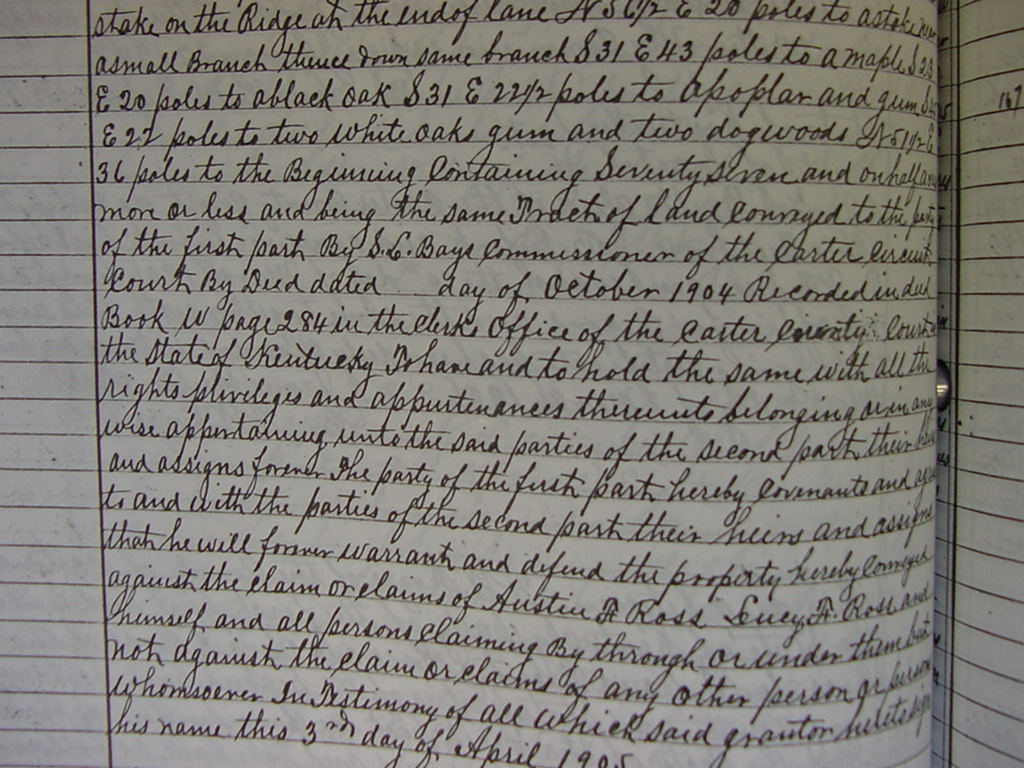 stake on the Ridge at the end of lane N 56 1/2 E 20 poles to a stake near
a small Branch thence down same branch S 31 E 43 poles to a maple
E 20 poles to a black oak S 31 E 22 1/2 poles to a poplar and gum
E 22 poles to two white oaks gum and two dogwoods N 51 1/2 E
167
36 poles to the Beginning Containing Seventy Seven and on half
more or less and being the same Tract of land Conveyed to the party
of the first part By S. L. Bays Commissioner of the Carter Circuit
Court By Deed dated day of October 1904 Recorded in deed
Book W page 284 in the Clerks Office of the Carter County Court
the State of Kentucky To have and to hold the same with all the
rights privileges and appurtenances thereunto belonging or in any
wise appertaining unto the said parties of the second part their heirs
and assigns forever The party of the first part hereby Covenants and
to and with the parties of the second part their heirs and assigns
that he will forever warrant and defend the property hereby Conveyed
against the claim or claims of Austin F Ross Lucy F. Ross and
himself and all persons Claiming By through or under them but
not against the Claim or Claims of any other person or person
whomsoever In Testimony of all which said grantor
his name this 3rd day of April 1905